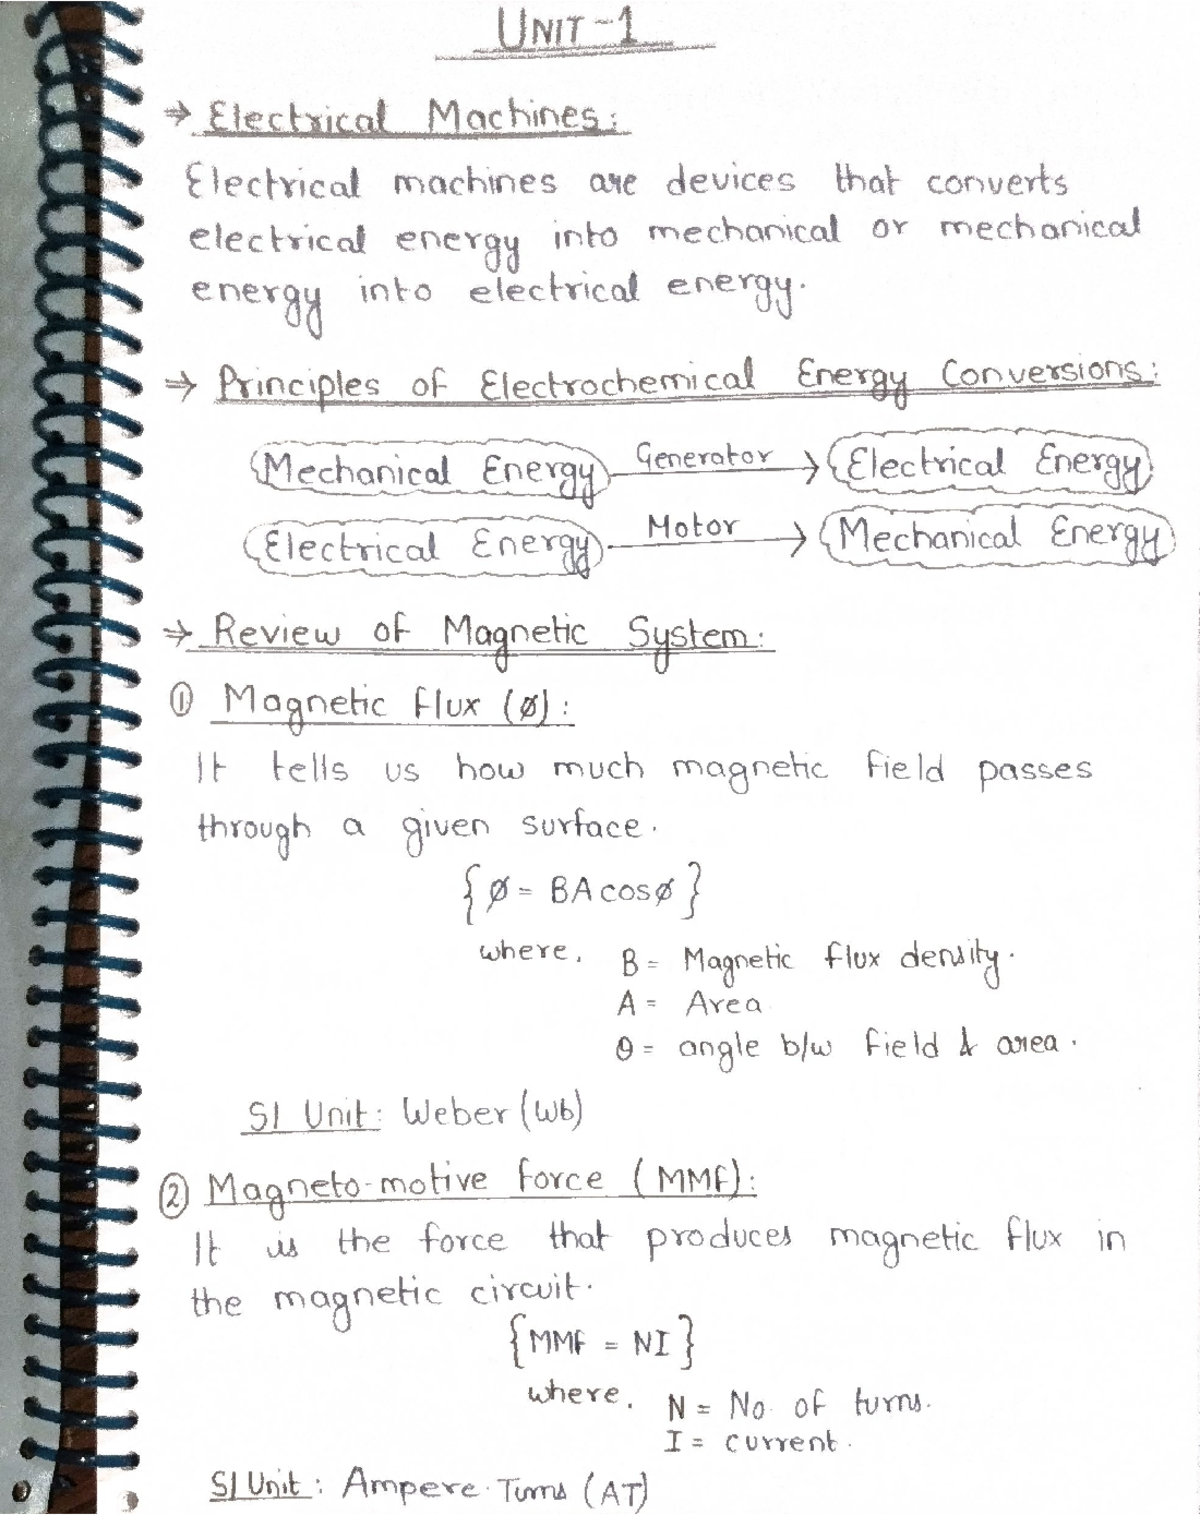 UNIT-1
→ Electrical Machines:
Electrical machines are devices that converts
electrical energy into mechanical or mechanical
energy into electrical energy.
→ Principles of Electrochemical Energy Conversions:
Mechanical Energy Generator → Electrical Energy
Electrical Energy Motor → Mechanical Energy
→ Review of Magnetic System:
① Magnetic flux (ø):
It tells us how much magnetic field passes
through a given surface.
{ø = BA cosø}
where, B = Magnetic flux density.
A = Area
θ = angle b/w field & area.
SI Unit: Weber (Wb)
② Magneto-motive force (MMF):
It is the force that produces magnetic flux in
the magnetic circuit.
{MMF = NI}
where, N = No. of turns.
I = current.
SI Unit: Ampere-Turns (AT)